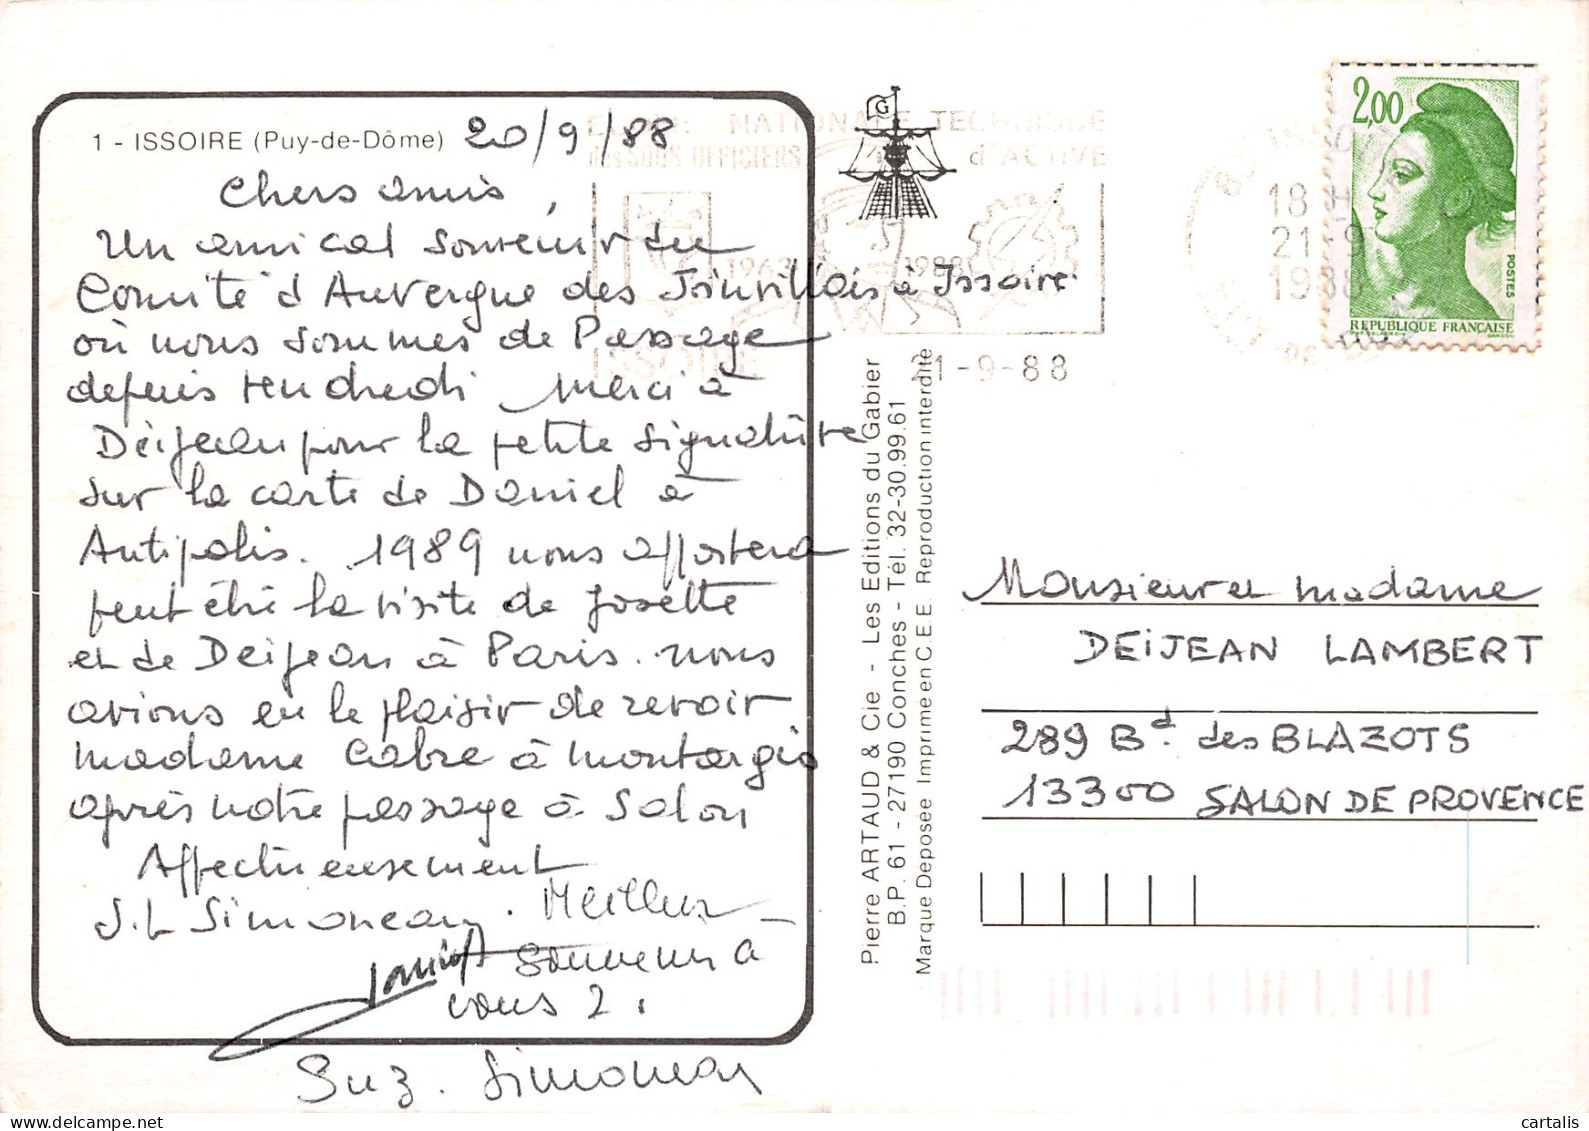 1 - ISSOIRE (Puy-de-Dôme) 20/9/88
Chers amis,
Un amical souvenir du
Comité d'Auvergne des Joinvillais à Issoire
où nous sommes de Passage
depuis vendredi Merci à
Deijean pour la petite signature
sur la carte de Daniel à
Antipolis. 1989 nous apportera
peut être la visite de Josette
et de Deijean à Paris. nous
avions eu le plaisir de revoir
Madame Cabre à Montargis
après notre passage à Salon
Affectueusement
J.L Simoneau. Meilleur
souvenir à
vous 2.
Suz. Simoneau
ECOLE NATIONALE TECHNIQUE
des SOUS OFFICIERS d'ACTIVE
1963 1988
ISSOIRE
21-9-88
G
Pierre ARTAUD & Cie - Les Editions du Gabier
B.P. 61 - 27190 Conches - Tél. 32-30.99.61
Marque Deposée Imprimé en C.E.E. Reproduction interdite
18 H
21-9
1988
2,00
POSTES
REPUBLIQUE FRANÇAISE
Monsieur et madame
DEIJEAN LAMBERT
289 Bd. des BLAZOTS
13300 SALON DE PROVENCE
cartalis